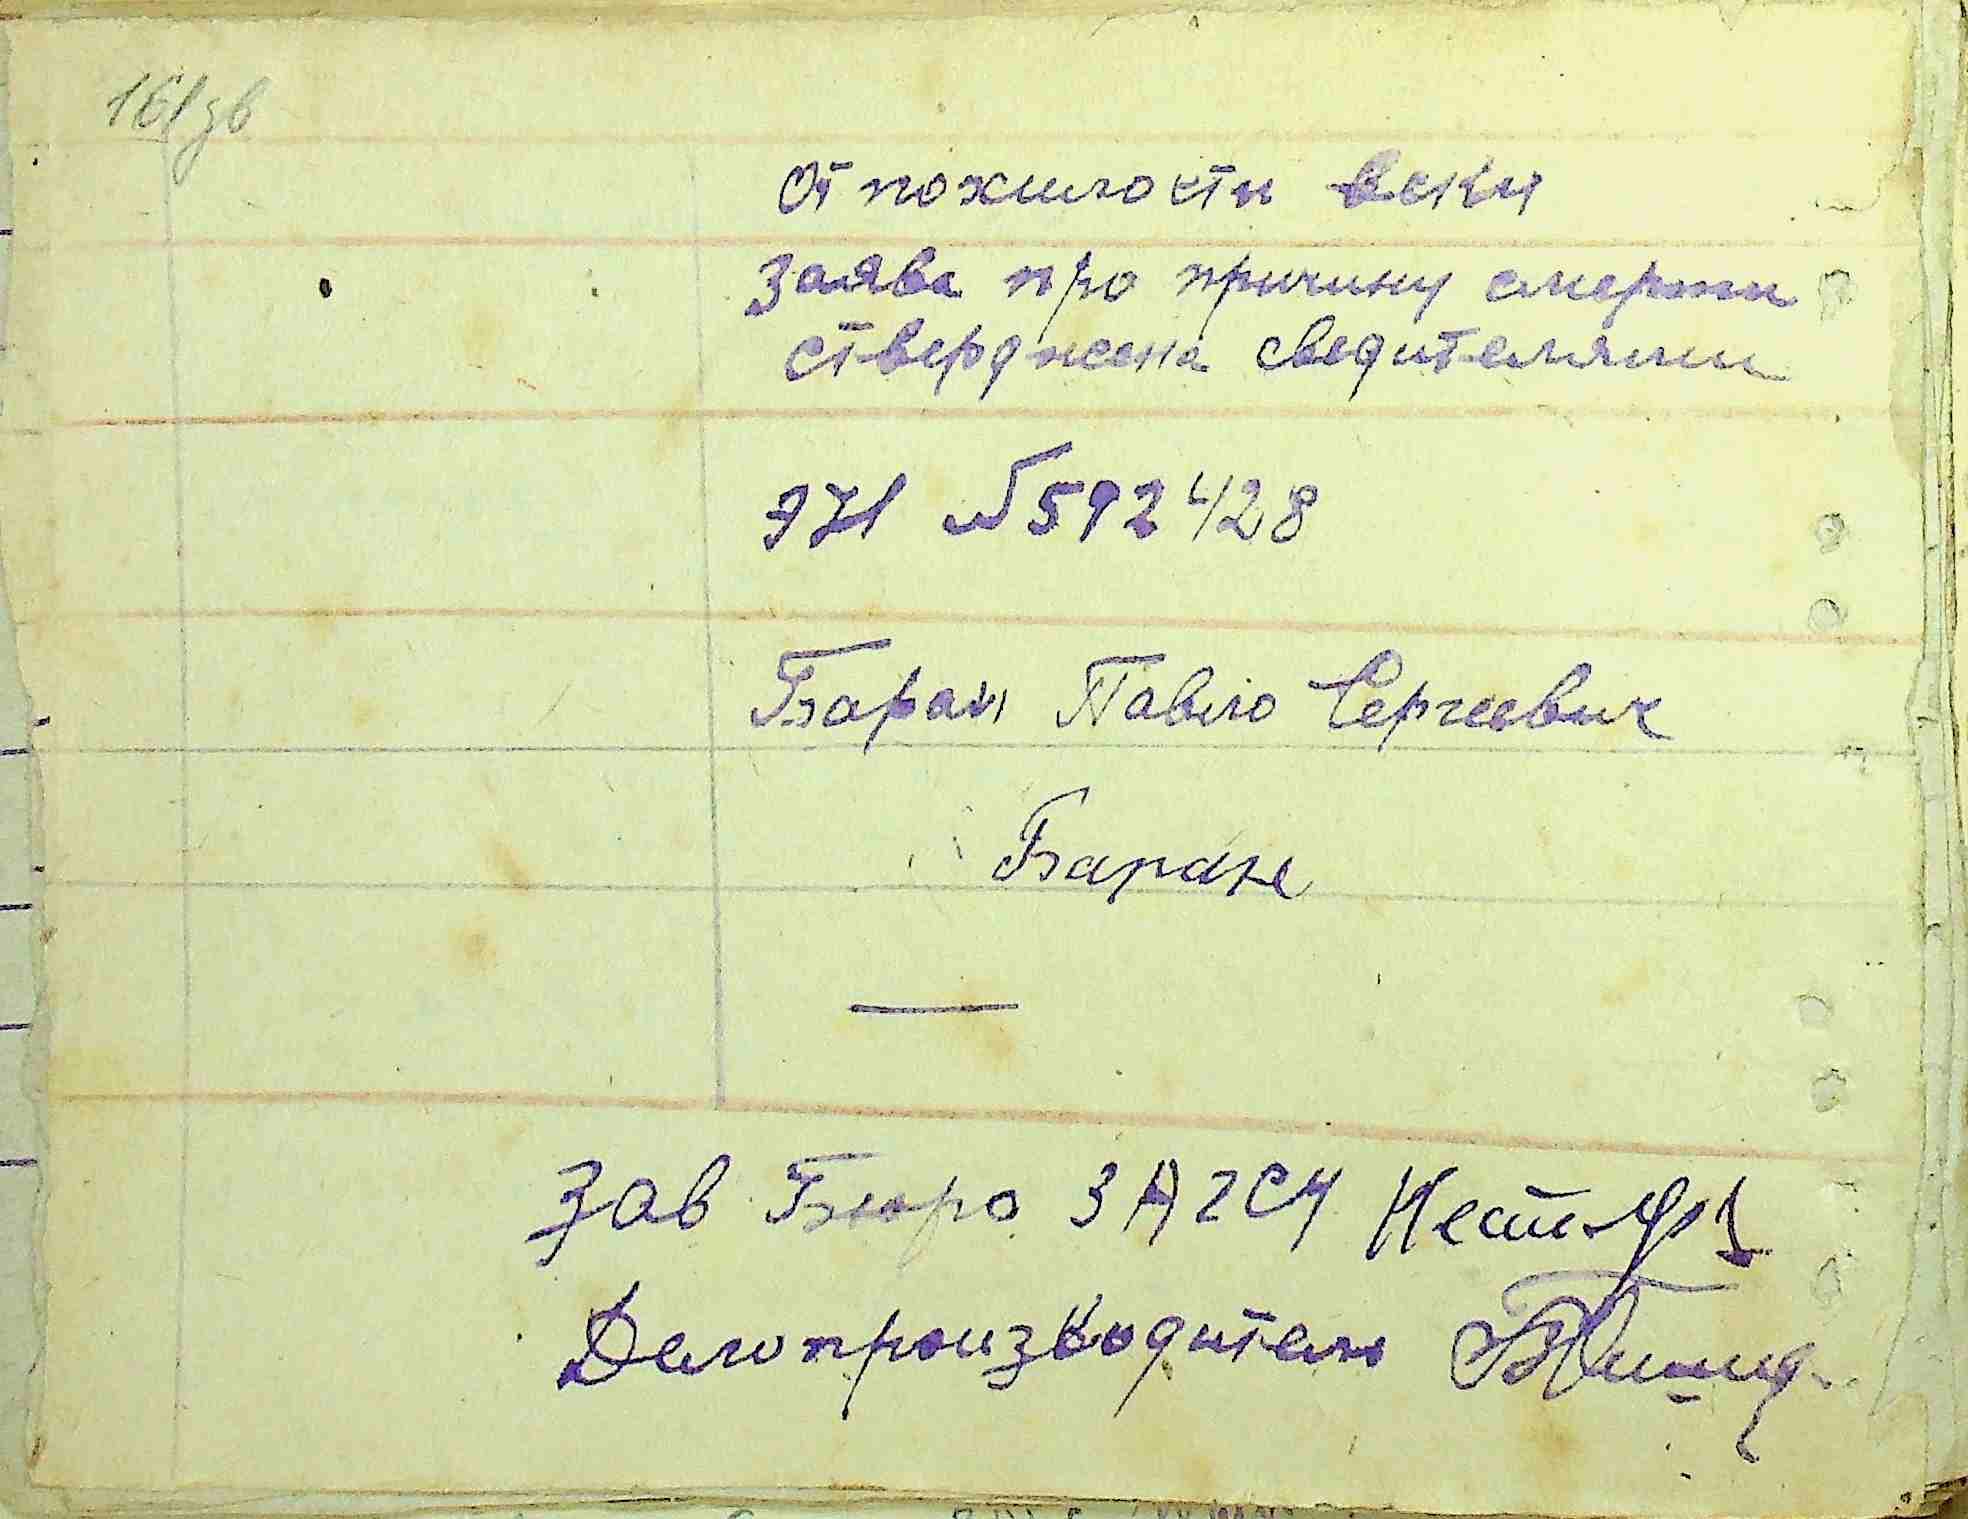 161зв
От пожилости веки
Заява про причину смерти
стверджена сведителями
ЭИ №592428
Баран Павло Сергеевич
Баран
Зав Бюро ЗАГСУ
Делопроизводитель